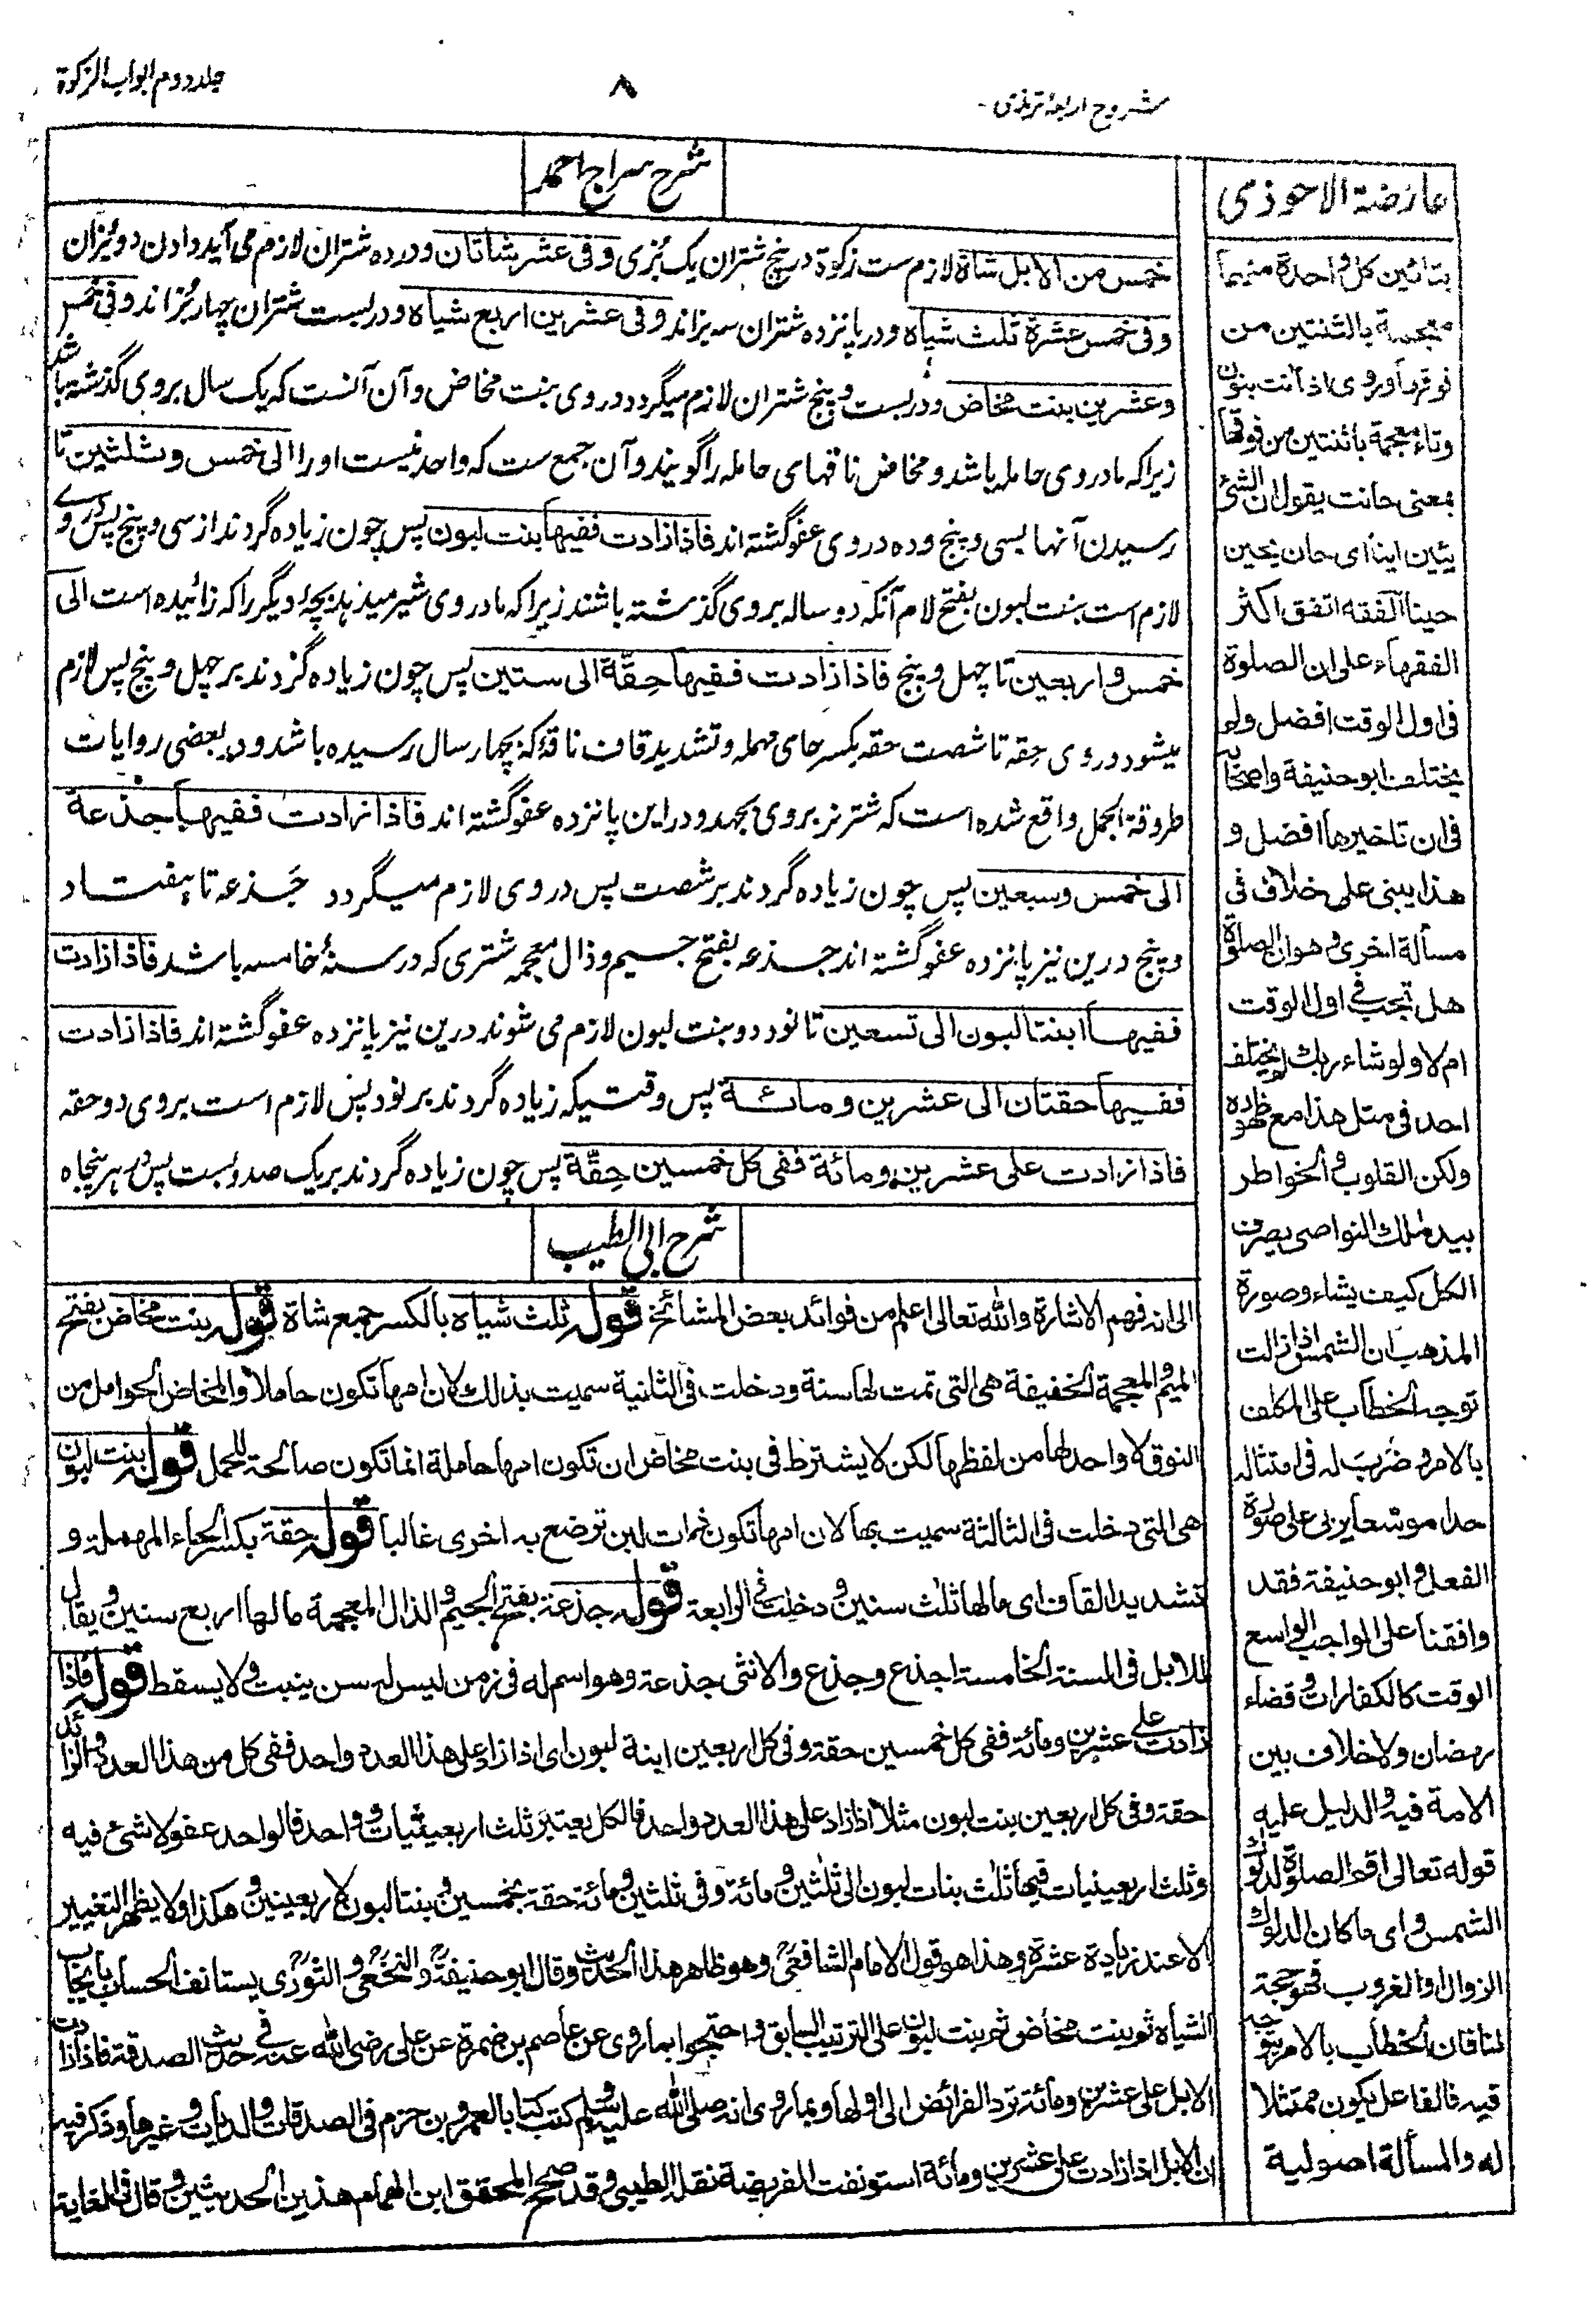 جلد دوم ابواب الزكوة
٨
شروح اربعۂ ترمذی -
عارضة الاحوذى
بتائين كل واحدة منهما
معجمة بالثنتين من
فوقها وروى اذا آنت بنون
وتاء معجمة باثنتين من فوقها
بمعنى حانت يقول ان الشئ
يئين اينا اى حان يحين
حينا الفقه اتفق اكثر
الفقهاء على ان الصلوة
فى اول الوقت افضل ولم
يختلف ابو حنيفة واصحابه
فى ان تاخيرها افضل و
هذا يبنى على خلاف فى
مسألة اخرى وهو ان الصلوة
هل تجب فى اول الوقت
ام لا ولو شاء ربك لم يختلف
احد فى مثل هذا مع ظهوره
ولكن القلوب والخواطر
بيد ملك النواصى يصرف
الكل كيف يشاء وصورة
المذهب ان الشمس اذا زالت
توجه الخطاب على المكلف
بالامر وضرب له فى امتثاله
حدا موسعا يربى على صلوة
الفعل وابو حنيفة فقد
وافقنا على الواجب الواسع
الوقت كالكفارات وقضاء
رمضان ولا خلاف بين
الامة فيه والدليل عليه
قوله تعالى اقم الصلوة لدلوك
الشمس واى ما كان الدلوك
الزوال او الغروب فهو حجة
لنا فان الخطاب بالامر يتوجه
فيه فالفاعل يكون ممتثلا
له والمسألة اصولية
شرح سراج احمد
خمس من الابل شاة لازم ست زكوة در پنج شتران يک بُزى وفى عشر شاتان ودر ده شتران لازم مى آيد دادن دو بُزان
وفى خمس عشرة ثلث شياه ودر پانزده شتران سه بزاند وفى عشرين اربع شياه ودر بست شتران چهار بُزاند وفى خمس
وعشرين بنت مخاض ودر بست وپنج شتران لازم ميگردد در وى بنت مخاض وآن آنست كه يک سال بروى گذشته باشد
زيراكه مادر وى حامله باشد ومخاض ناقهاى حامله را گويند وآن جمع ست كه واحد نيست او را الى خمس وثلثين تا
رسيدن آنها بسى وپنج وده در وى عفو گشته اند فاذا زادت ففيها بنت لبون پس چون زياده گردند از سى وپنج پس در وے
لازم است بنت لبون بفتح لام آنكه دو ساله بروى گذشته باشند زيراكه مادر وى شير ميدهد بچهٔ ديگر را كه زائيده است الى
خمس واربعين تا چهل وپنج فاذا زادت ففيها حِقّة الى ستين پس چون زياده گردند بر چهل وپنج پس لازم
ميشود در وى حِقه تا شصت حقه بكسر حاى مهمله وتشديد قاف ناقهٔ كه بچهار سال رسيده باشد ودر بعضى روايات
طروقة الجمل واقع شده است كه شتر نر بروى بجهد ودر اين پانزده عفو گشته اند فاذا زادت ففيها جذعة
الى خمس وسبعين پس چون زياده گردند بر شصت پس در وى لازم ميگردد جَذعه تا هفتاد
وپنج درين نيز پانزده عفو گشته اند جذعه بفتح جيم وذال معجمه شترى كه در سنهٔ خامسه باشد فاذا زادت
ففيها ابنتا لبون الى تسعين تا نود دو بنت لبون لازم مى شوند درين نيز پانزده عفو گشته اند فاذا زادت
ففيها حقتان الى عشرين ومائة پس وقتيكه زياده گردند بر نود پس لازم است بروى دو حقه
فاذا زادت على عشرين ومائة ففى كل خمسين حِقّة پس چون زياده گردند بر يک صد وبست پس در هر پنجاه
شرح ابى الطيب
الى انه فهم الاشارة والله تعالى اعلم من فوائد بعض المشائخ قوله ثلث شياه بالكسر جمع شاة قوله بنت مخاض بفتح
الميم والمعجمة الخفيفة هى التى تمت لها سنة ودخلت فى الثانية سميت بذلك لان امها تكون حاملا والمخاض الحوامل من
النوق لا واحد لها من لفظها لكن لا يشترط فى بنت مخاض ان تكون امها حاملة انما تكون صالحة للحمل قوله بنت لبون
هى التى دخلت فى الثالثة سميت بها لان امها تكون ذات لبن توضع به اخرى غالبا قوله حقة بكسر الحاء المهملة و
تشديد القاف اى ما لها ثلث سنين ودخلت فى الرابعة قوله جذعة بفتح الجيم والذال المعجمة ما لها اربع سنين ويقال
للابل فى السنة الخامسة اجذع وجذع والانثى جذعة وهو اسم له فى زمن ليس له سن ينبت ولا يسقط قوله فاذا
زادت على عشرين ومائة ففى كل خمسين حقة وفى كل اربعين ابنة لبون اى اذا زاد على هذا العدد واحد ففى كل من هذا العدد والزائد
حقة وفى كل اربعين بنت لبون مثلا اذا زاد على هذا العدد واحد فالكل يعتبر ثلث اربعينيات وواحد فالواحد عفو لا شئ فيه
وثلث اربعينيات فيها ثلث بنات لبون الى ثلثين ومائة وفى ثلثين ومائة حقة بخمسين وبنتا لبون لاربعينين وهكذا ولا يظهر التغيير
الا عند زيادة عشرة وهذا هو قول الامام الشافعى وهو ظاهر هذا الحديث وقال ابو حنيفة والنخعى والثورى يستانف الحساب بايجاب
الشياه ثم بنت مخاض ثم بنت لبون على الترتيب السابق واحتجوا بما روى عن عاصم بن ضمرة عن على رضى الله عنه فى حديث الصدقة فاذا زادت
الابل على عشرين ومائة ترد الفرائض الى اولها وبما روى انه صلى الله عليه وسلم كتب كتابا لعمرو بن حزم فى الصدقات والديات وغيرها وذكر فيه
ان الابل اذا زادت على عشرين ومائة استونفت الفريضة نقله الطيبى وقد صحح المحقق ابن الهمام هذين الحديثين وقال فى الغاية